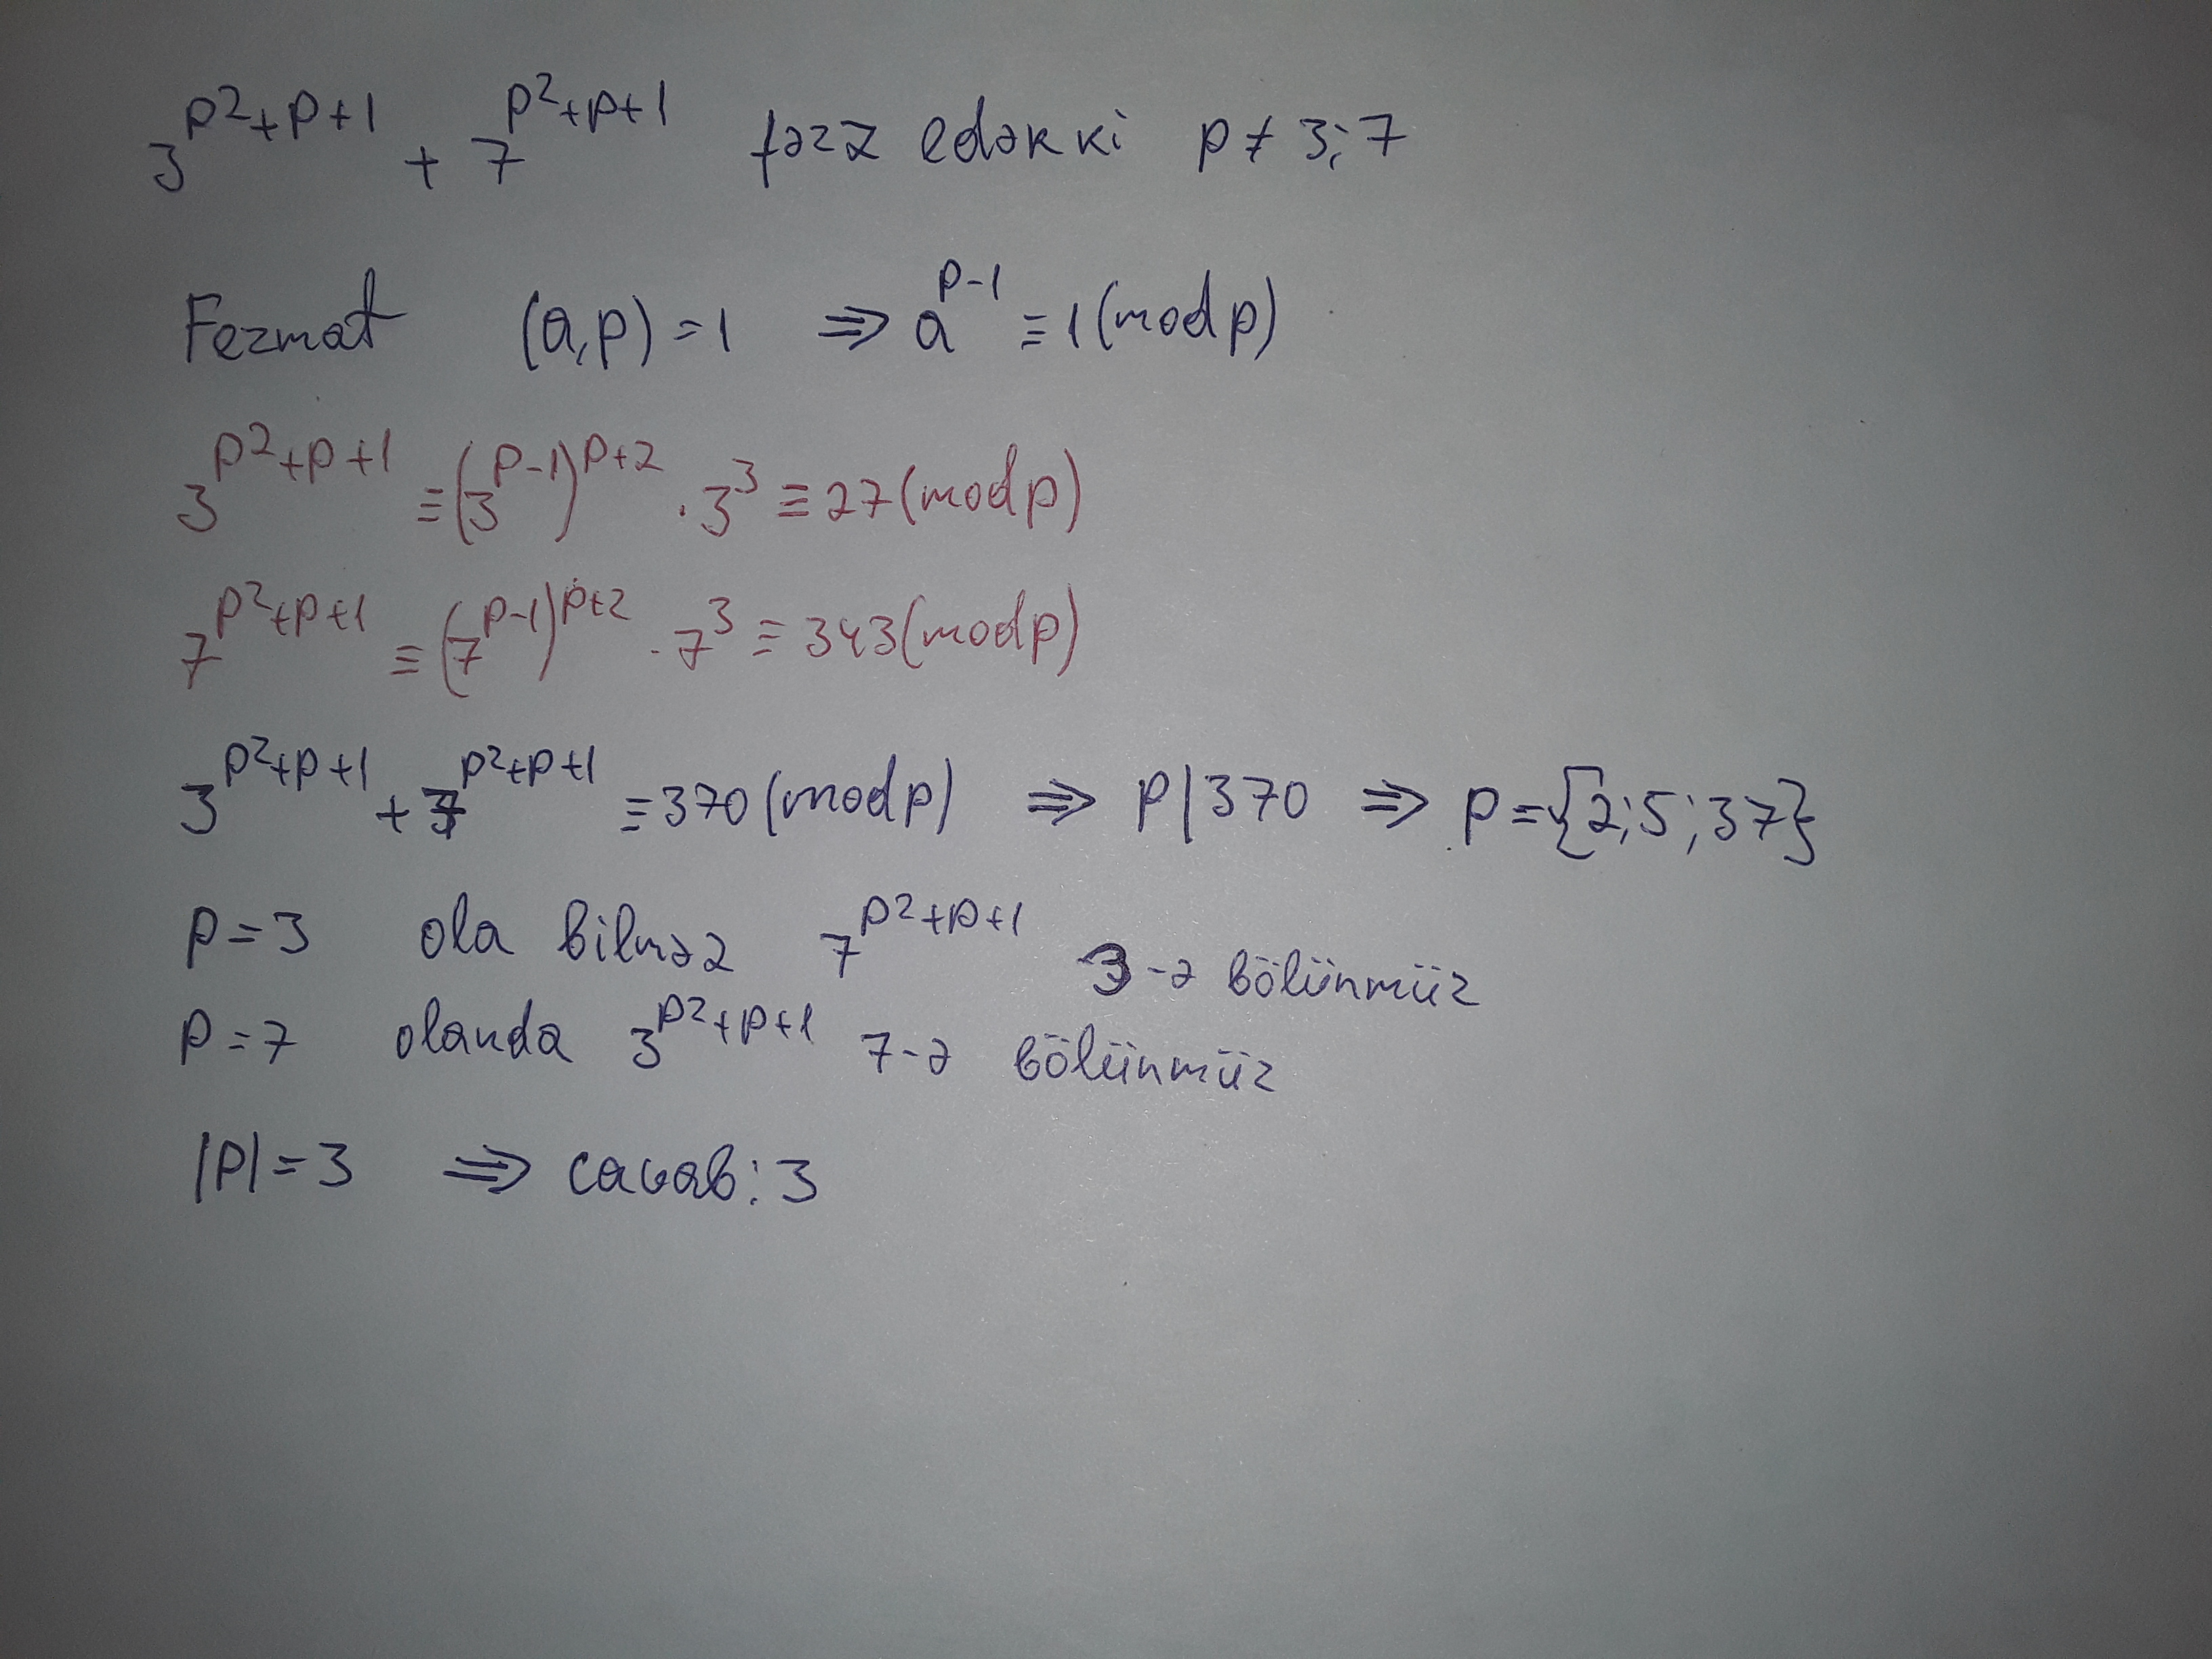 3^{p²+p+1} + 7^{p²+p+1} fərz edəkki p ≠ 3; 7
Fermat (a,p)=1 ⇒ a^{p-1} ≡ 1(mod p)
3^{p²+p+1} ≡ (3^{p-1})^{p+2} · 3³ ≡ 27(mod p)
7^{p²+p+1} ≡ (7^{p-1})^{p+2} · 7³ ≡ 343(mod p)
3^{p²+p+1} + 7^{p²+p+1} ≡ 370(mod p) ⇒ p|370 ⇒ p={2;5;37}
p=3 ola bilməz 7^{p²+p+1} 3-ə bölünmür
p=7 olanda 3^{p²+p+1} 7-ə bölünmür
|p|=3 ⇒ cavab: 3